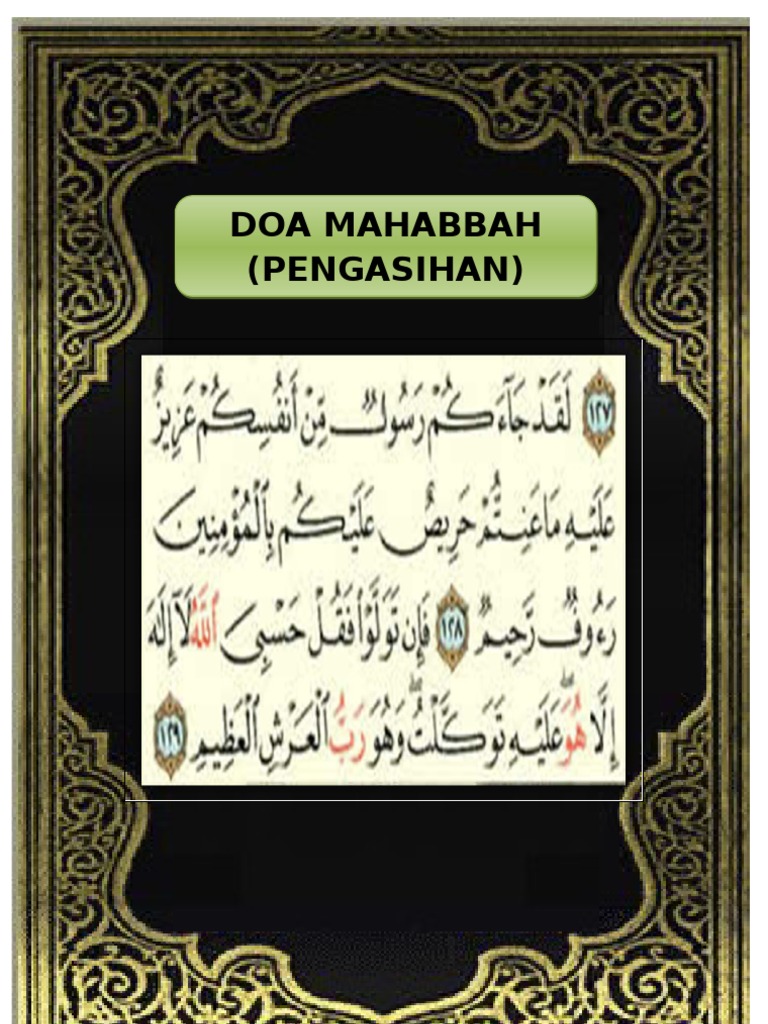 DOA MAHABBAH
(PENGASIHAN)
١٢٧ لَقَدْ جَآءَكُمْ رَسُولٌ مِّنْ أَنفُسِكُمْ عَزِيزٌ
عَلَيْهِ مَا عَنِتُّمْ حَرِيصٌ عَلَيْكُم بِٱلْمُؤْمِنِينَ
رَءُوفٌ رَّحِيمٌ ١٢٨ فَإِن تَوَلَّوْا۟ فَقُلْ حَسْبِىَ ٱللَّهُ لَآ إِلَٰهَ
إِلَّا هُوَ ۖ عَلَيْهِ تَوَكَّلْتُ ۖ وَهُوَ رَبُّ ٱلْعَرْشِ ٱلْعَظِيمِ ١٢٩